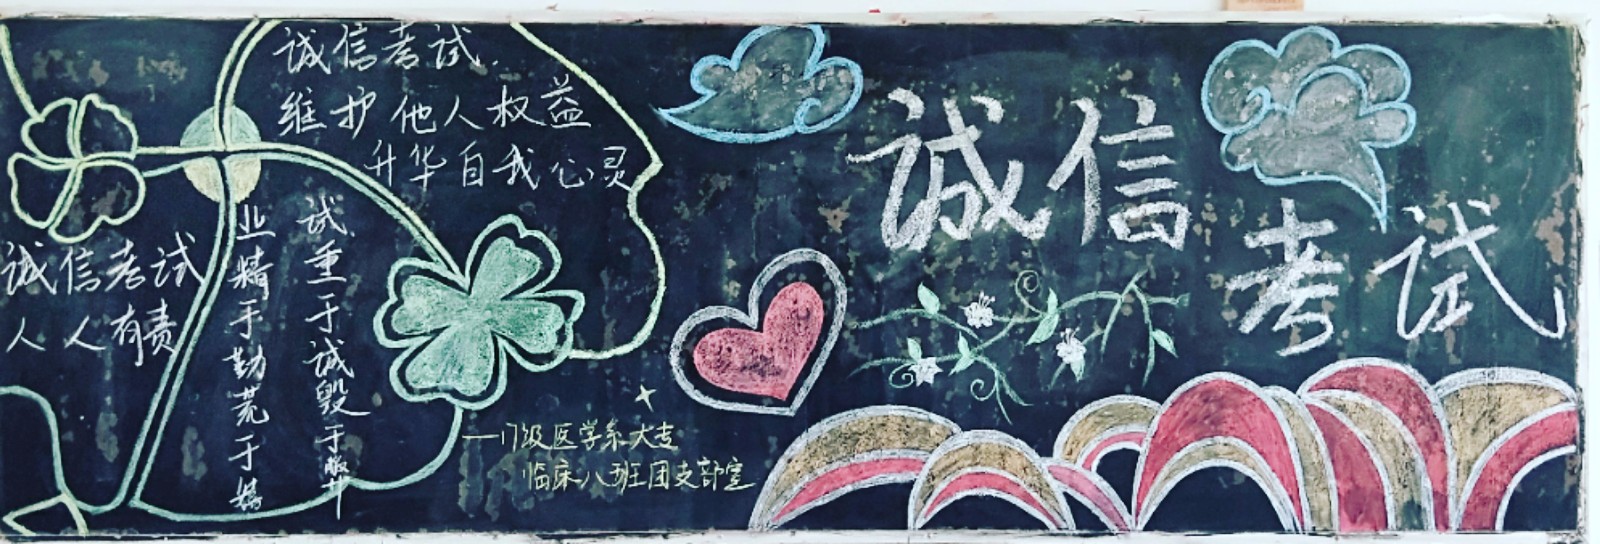 诚信考试.
维护他人权益
升华自我心灵
诚信考试
人人有责
业精于勤荒于嬉
试重于诚毁于弊
诚信
考试
—17级医学系大专
临床八班团支部宣